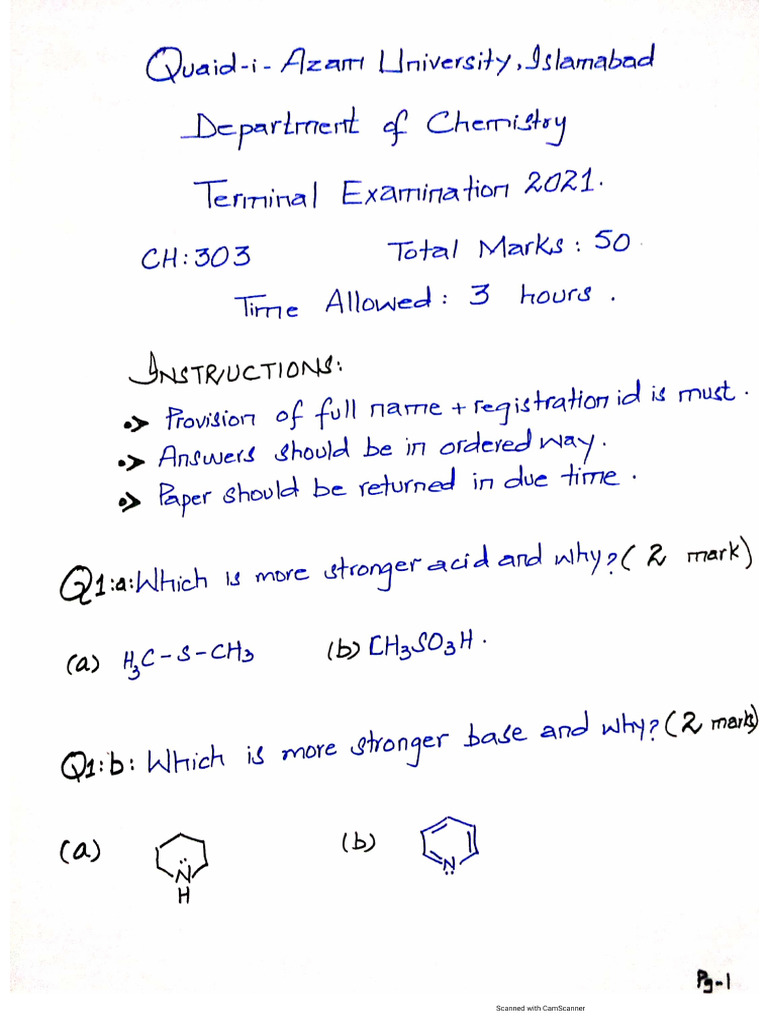 Quaid-i-Azam University, Islamabad
Department of Chemistry
Terminal Examination 2021.
CH:303 Total Marks: 50
Time Allowed: 3 hours.
INSTRUCTIONS:
Provision of full name + registration id is must.
Answers should be in ordered way.
Paper should be returned in due time.
Q1:a: Which is more stronger acid and why? (2 mark)
(a) H₃C-S-CH₃ (b) CH₃SO₃H.
Q1:b: Which is more stronger base and why? (2 mark)
(a) (b)
N N
H
Pg-1
Scanned with CamScanner